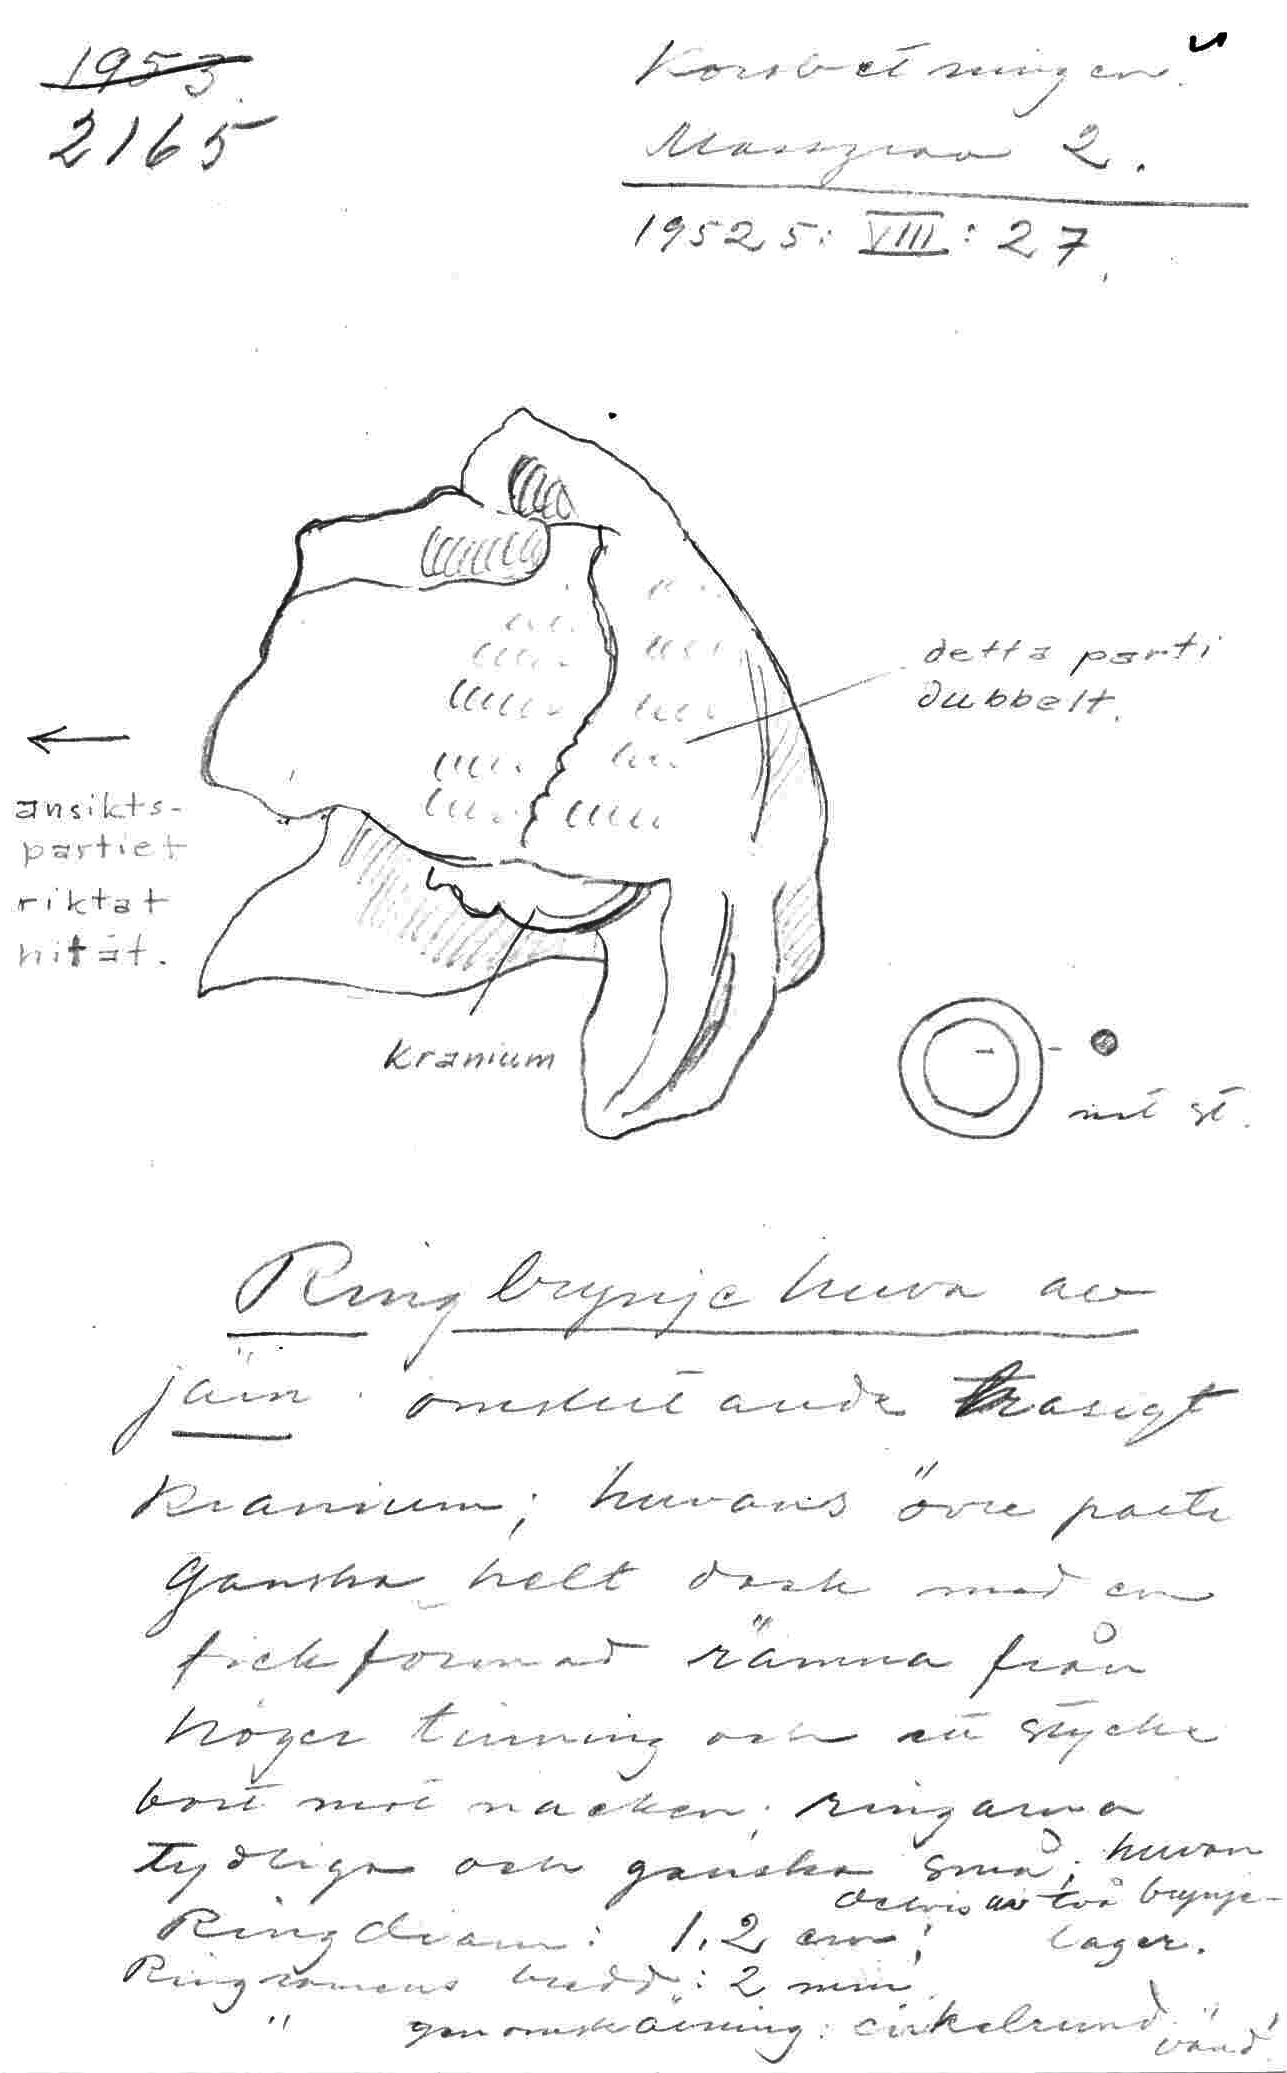 1953
2165
Korsbetningen.
Massgrav 2.
19525: VIII : 27.
detta parti
dubbelt.
ansikts-
partiet
riktat
hitåt.
kranium
nat st.
Ringbrynjehuva av
järn omslutande trasigt
kranium; huvans övre parti
ganska helt dock med en
fickformad rämna från
höger tinning och ett stycke
bort mot nacken; ringarna
tydliga och ganska små; huvan
delvis av två brynje-
lager.
Ringdiam: 1,2 cm;
Ringramens bredd: 2 mm
" genomskärning: cirkelrund